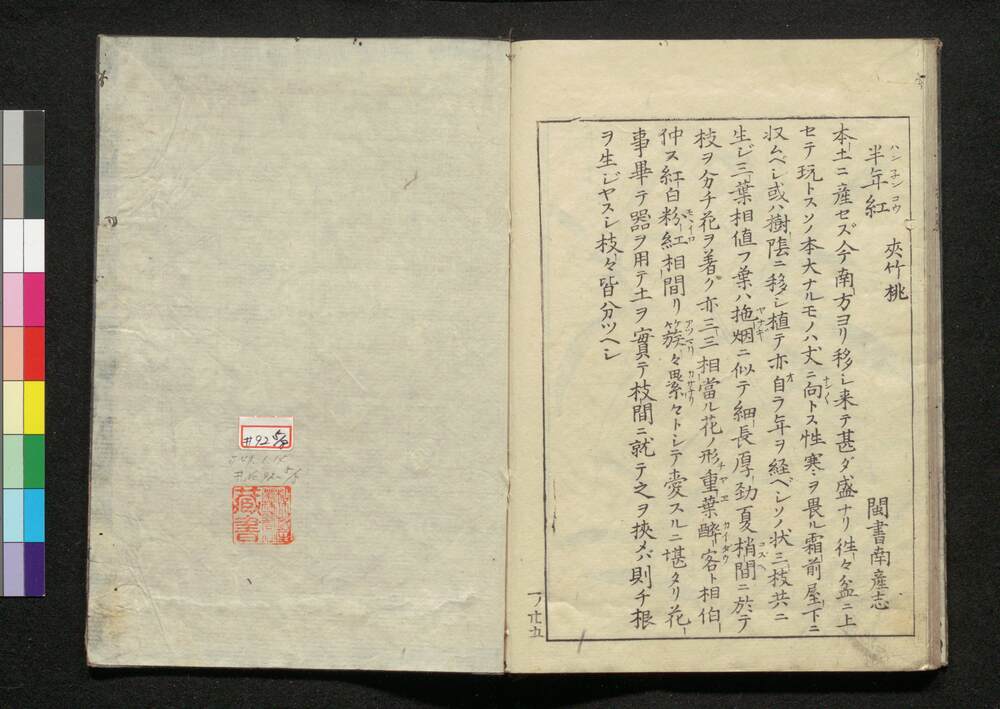 半年紅 夾竹桃 閩書南産志
ハンネンコウ
本土ニ産セズ今南方ヨリ移シ来テ甚ダ盛ナリ徃々盆ニ上
セテ玩トスソノ本大ナルモノハ丈ニ向トス性寒ヲ畏ル霜前屋下ニ
収ムベシ或ハ樹陰ニ移シ植テ亦自ラ年ヲ経ベシソノ状三枝共ニ
オ
生ジ三葉相値フ葉ハ拖烟ニ似テ細長厚勁夏梢間ニ於テ
ヤナギ
コズヘ
枝ヲ分チ花ヲ著ク亦三三相當ル花ノ形重葉酔客ト相伯
チヤヱ
カイダウ
仲ス紅白粉紅相間リ簇々累々トシテ愛スルニ堪タリ花
モヽイロ
アツマリ
カサナリ
事畢テ器ヲ用テ土ヲ實テ枝間ニ就テ之ヲ挾メバ則チ根
ヲ生ジヤスシ枝々皆分ツヘシ
一ノ廿五
#92
蔵書